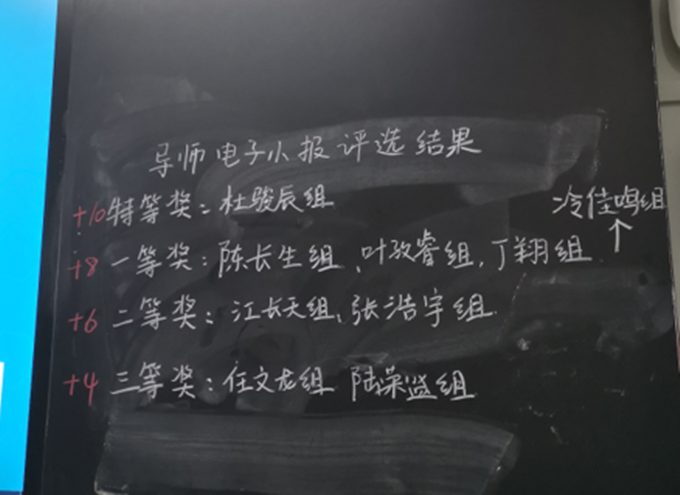 导师电子小报评选结果
+10 特等奖：杜骏辰组
冷佳鸣组
↑
+8 一等奖：陈长生组、叶孜睿组，丁翔组
+6 二等奖：江长天组、张浩宇组
+4 三等奖：任文龙组 陆深盜组